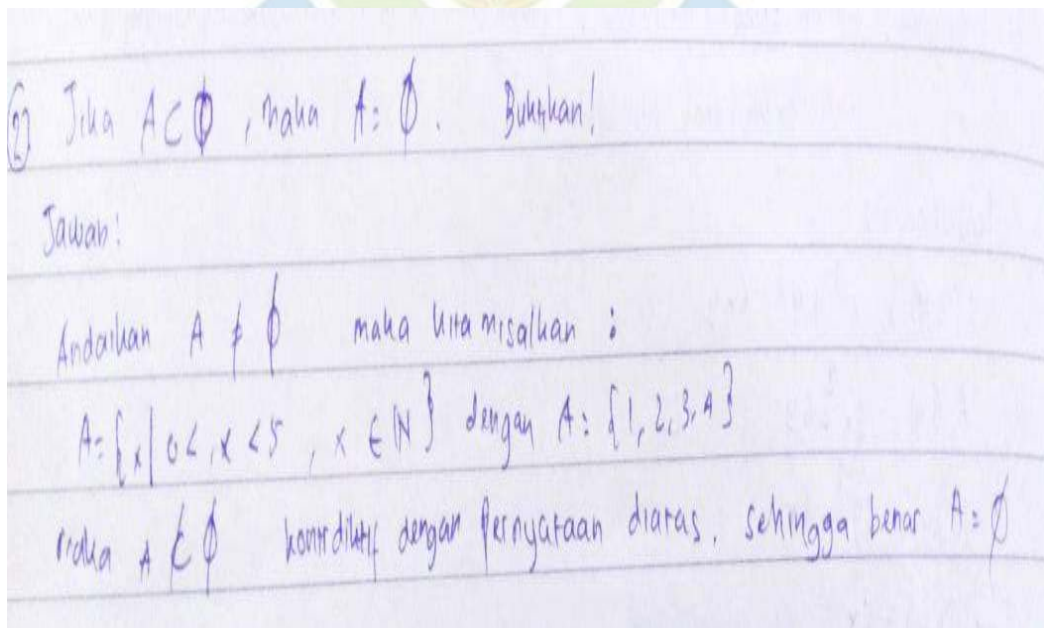 ② Jika A ⊂ ∅, maka A = ∅. Buktikan!
Jawab:
Andaikan A ≠ ∅ maka kita misalkan :
A = {x | 0 < x < 5, x ∈ ℕ} dengan A = {1, 2, 3, 4}
maka A ⊄ ∅ kontrdiktif dengan pernyataan diatas, sehingga benar A = ∅